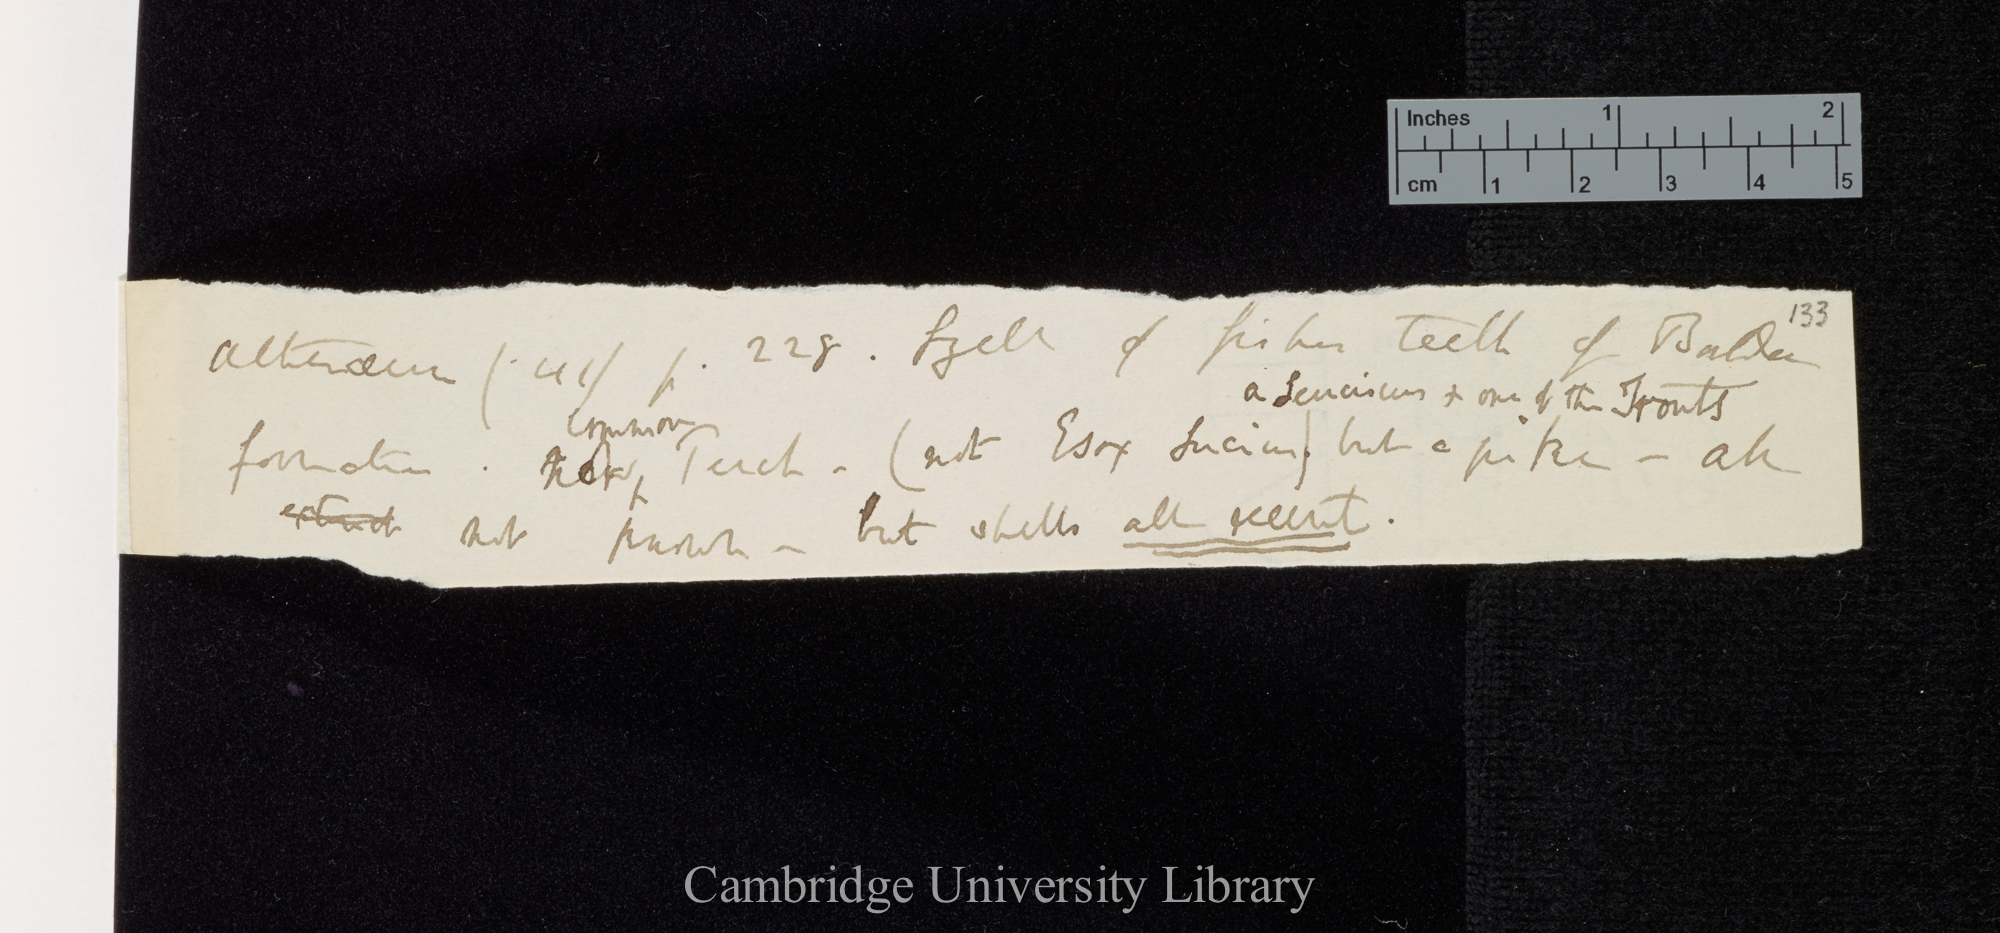 133
Athenæum (/41) p. 228. Lyell of fishes teeth of Boulder
a Leuciscus & one of the Trouts
formation. common Perch – (not Esox Lucius) but a pike – all
extinct not known – but shells all recent.
Inches 1 2
cm 1 2 3 4 5
Cambridge University Library